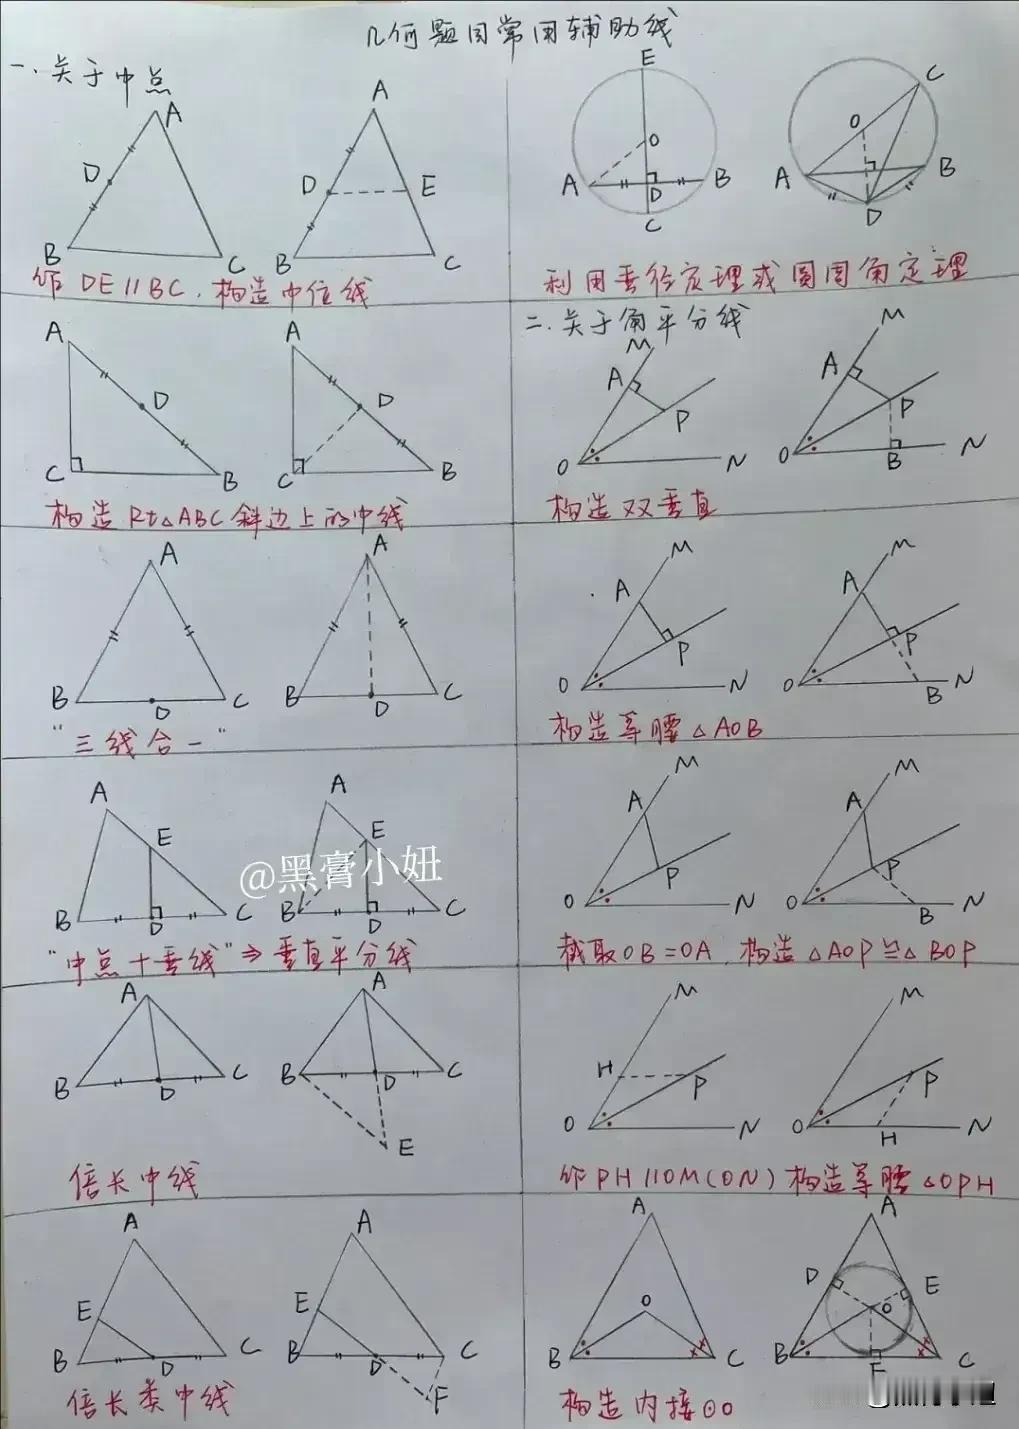 几何题目常用辅助线
一.关于中点
A
D
B
C
A
D
E
B
C
作DE∥BC,构造中位线
E
O
A
B
D
C
C
O
A
B
D
利用垂径定理或圆周角定理
A
D
C
B
A
D
C
B
构造Rt△ABC斜边上的中线
二.关于角平分线
M
A
P
O
N
M
A
P
O
B
N
构造双垂直
A
B
D
C
A
B
D
C
"三线合一"
M
A
P
O
N
M
A
P
O
B
N
构造等腰△AOB
A
E
B
D
C
A
E
B
D
C
@黑膏小妞
"中点+垂线"⇒垂直平分线
M
A
P
O
N
M
A
P
O
B
N
截取OB=OA,构造△AOP≌△BOP
A
B
D
C
A
B
D
C
E
倍长中线
M
H
P
O
N
M
P
O
H
N
作PH∥OM(ON)构造等腰△OPH
A
E
B
D
C
A
E
B
D
C
F
倍长类中线
A
O
B
C
A
D
E
O
B
F
C
构造内接⊙O